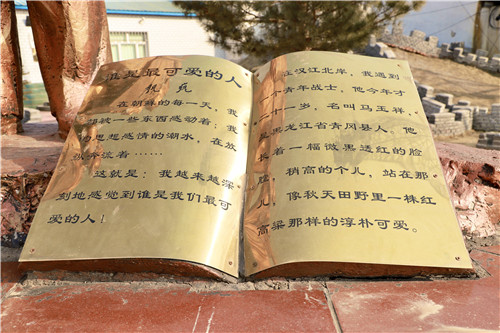 谁是最可爱的人
魏巍
在朝鲜的每一天，我
都被一些东西感动着；我
的思想感情的潮水，在放
纵奔流着……
这就是：我越来越深
刻地感觉到谁是我们最可
爱的人！
在汉江北岸，我遇到
一个青年战士，他今年才
二十一岁，名叫马玉祥，
是黑龙江省青冈县人。他
长着一幅微黑透红的脸
脸，稍高的个儿，站在那
儿，像秋天田野里一株红
高粱那样的淳朴可爱。